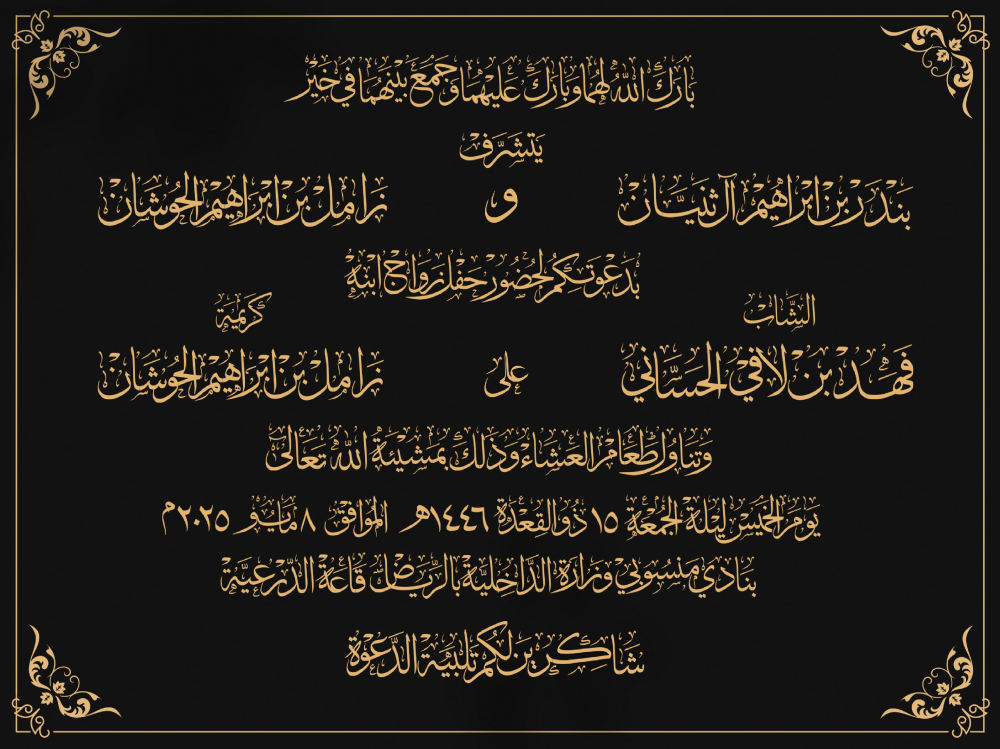 بَارَكَ اللَّهُ لَهُمَا وَبَارَكَ عَلَيْهِمَا وَجَمَعَ بَيْنَهُمَا فِي خَيْرٍ
يَتَشَرَّفُ
بَنْدَر بِنْ ابْرَاهِيْم آل ثنَيَّان و زَامِل بِن ابْرَاهِيْم الحُوشَان
بِدَعْوَتِكُمْ لِحُضُورْ حَفْل زَوَاج ابْنِهْ
الشَّابْ كَرِيْمَةْ
فَهَد بِنْ لَافِي الحَسَّانِي عَلى زَامِل بِن ابْرَاهِيْم الحُوشَان
وَتَنَاوُل طَعَام العَشَاء وَذَلكَ بمَشيْئَة اللَّه تَعَالَى
يَوْم الخَمِيْس لَيْلَة الجُمْعَة ١٥ ذُو القِعْدَة ١٤٤٦هـ المُوَافِق ٨ مَايُو ٢٠٢٥م
بنَادي مَنْسُوبي وزَارَة الدَّاخليَّة بالرِّيَاض قَاعَة الدّرعيَّة
شَاكِرِيْن لَكُم تَلْبيَة الدَّعْوَة